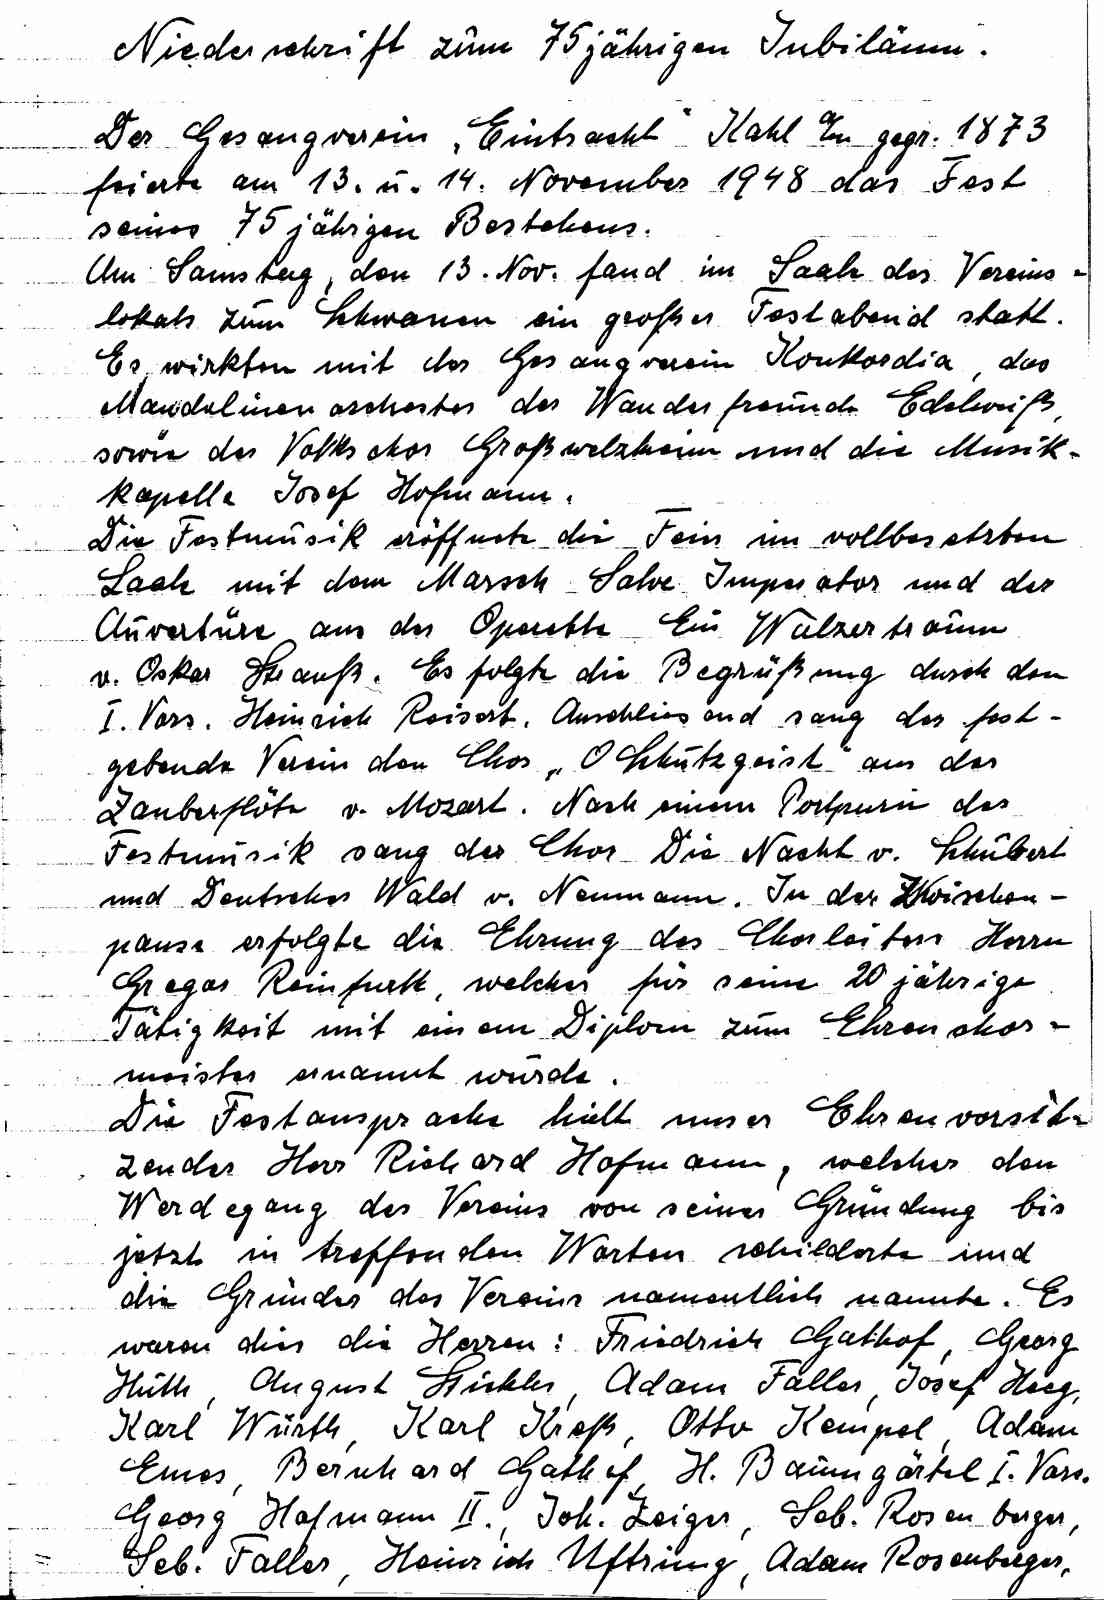 Niederschrift zum 75jährigen Jubiläum.
Der Gesangverein „Eintracht" Kahl a/M gegr. 1873
feierte am 13. u. 14. November 1948 das Fest
seines 75 jährigen Bestehens.
Am Samstag, den 13. Nov. fand im Saale des Vereins-
lokals zum Schwanen ein großer Festabend statt.
Es wirkten mit der Gesangverein Konkordia, das
Mandolinenorchester der Wanderfreunde Edelweiß,
sowie der Volkschor Großwelzheim und die Musik-
kapelle Josef Hofmann.
Die Festmusik eröffnete die Feier im vollbesetzten
Saale mit dem Marsch Salve Imperator und der
Ouvertüre aus der Operette Ein Walzertraum
v. Oskar Strauß. Es folgte die Begrüßung durch den
I. Vors. Heinrich Reisert. Anschliesend sang der fest-
gebende Verein den Chor „O Schutzgeist" aus der
Zauberflöte v. Mozart. Nach einem Portpurie der
Festmusik sang der Chor Die Nacht v. Schubert
und Deutscher Wald v. Neumann. In der Zwischen-
pause erfolgte die Ehrung des Chorleiters Herrn
Gregor Reinfurth, welcher für seine 20 jährige
Tätigkeit mit einem Diplom zum Ehrenchor-
meister ernannt wurde.
Die Festansprache hielt unser Ehrenvorsit-
zender Herr Richard Hofmann, welcher den
Werdegang des Vereins von seiner Gründung bis
jetzt in treffenden Worten schilderte und
die Gründer des Vereins namentlich nannte. Es
waren dies die Herren: Friedrich Gathof, Georg
Huth, August Stickler, Adam Faller, Josef Heeg,
Karl Würth, Karl Kreß, Otto Kempel, Adam
Emes, Bernhard Gathof, H. Baumgärtel I. Vors.
Georg Hofmann II., Joh. Zeiger, Seb. Rosenberger,
Seb. Faller, Heinrich Uftring, Adam Rosenberger,